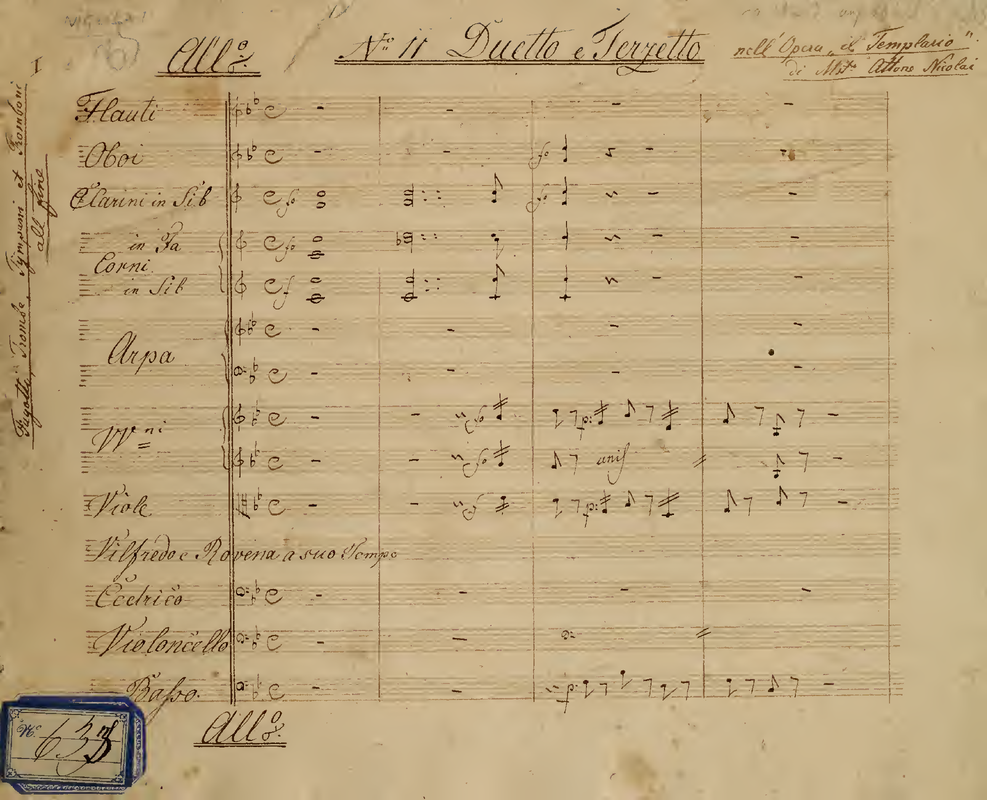 All.o N.o 11 Duetto e Terzetto nell'Opera "il Templario"
di M.stro Ottone Nicolai
I
Fagotti, Trombe, Tympani et Tromboni
all fine
Flauti
Oboi
Clarini in Sib
in Fa
Corni
in Sib
Arpa
VV.ni
unis
Viole
Vilfredo e Rovena a suo Tempo
Cedrico
Violoncello
Basso.
All.o
N.o 633